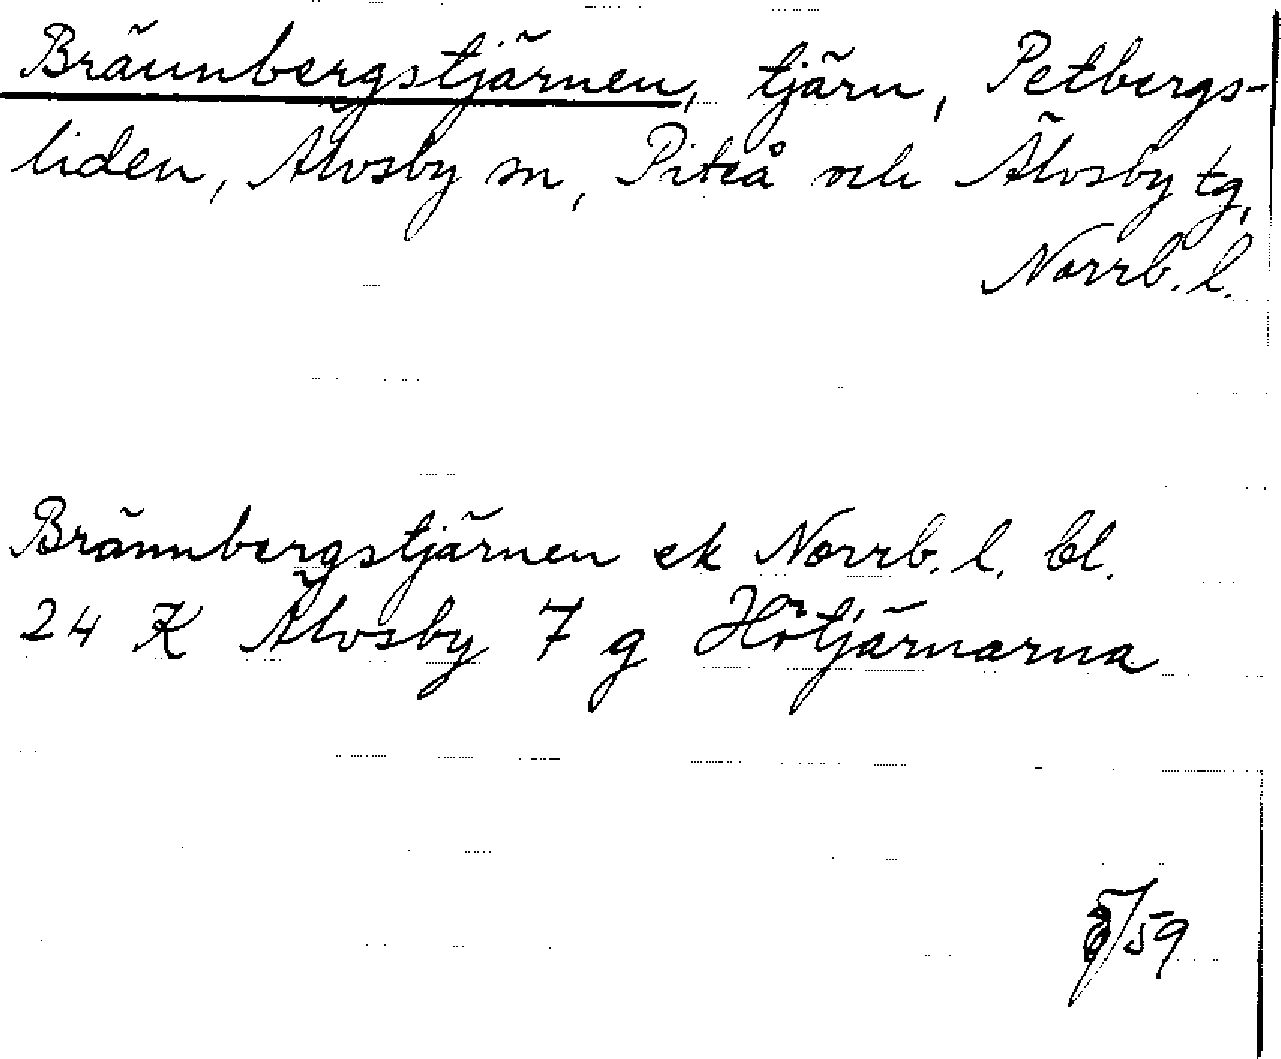 Brännbergstjärnen, tjärn, Petbergs-
liden, Älvsby sn, Piteå och Älvsby tg,
Norrb. l.
Brännbergstjärnen ek Norrb. l. bl.
24 K Älvsby 7 g Hötjärnarna
/59